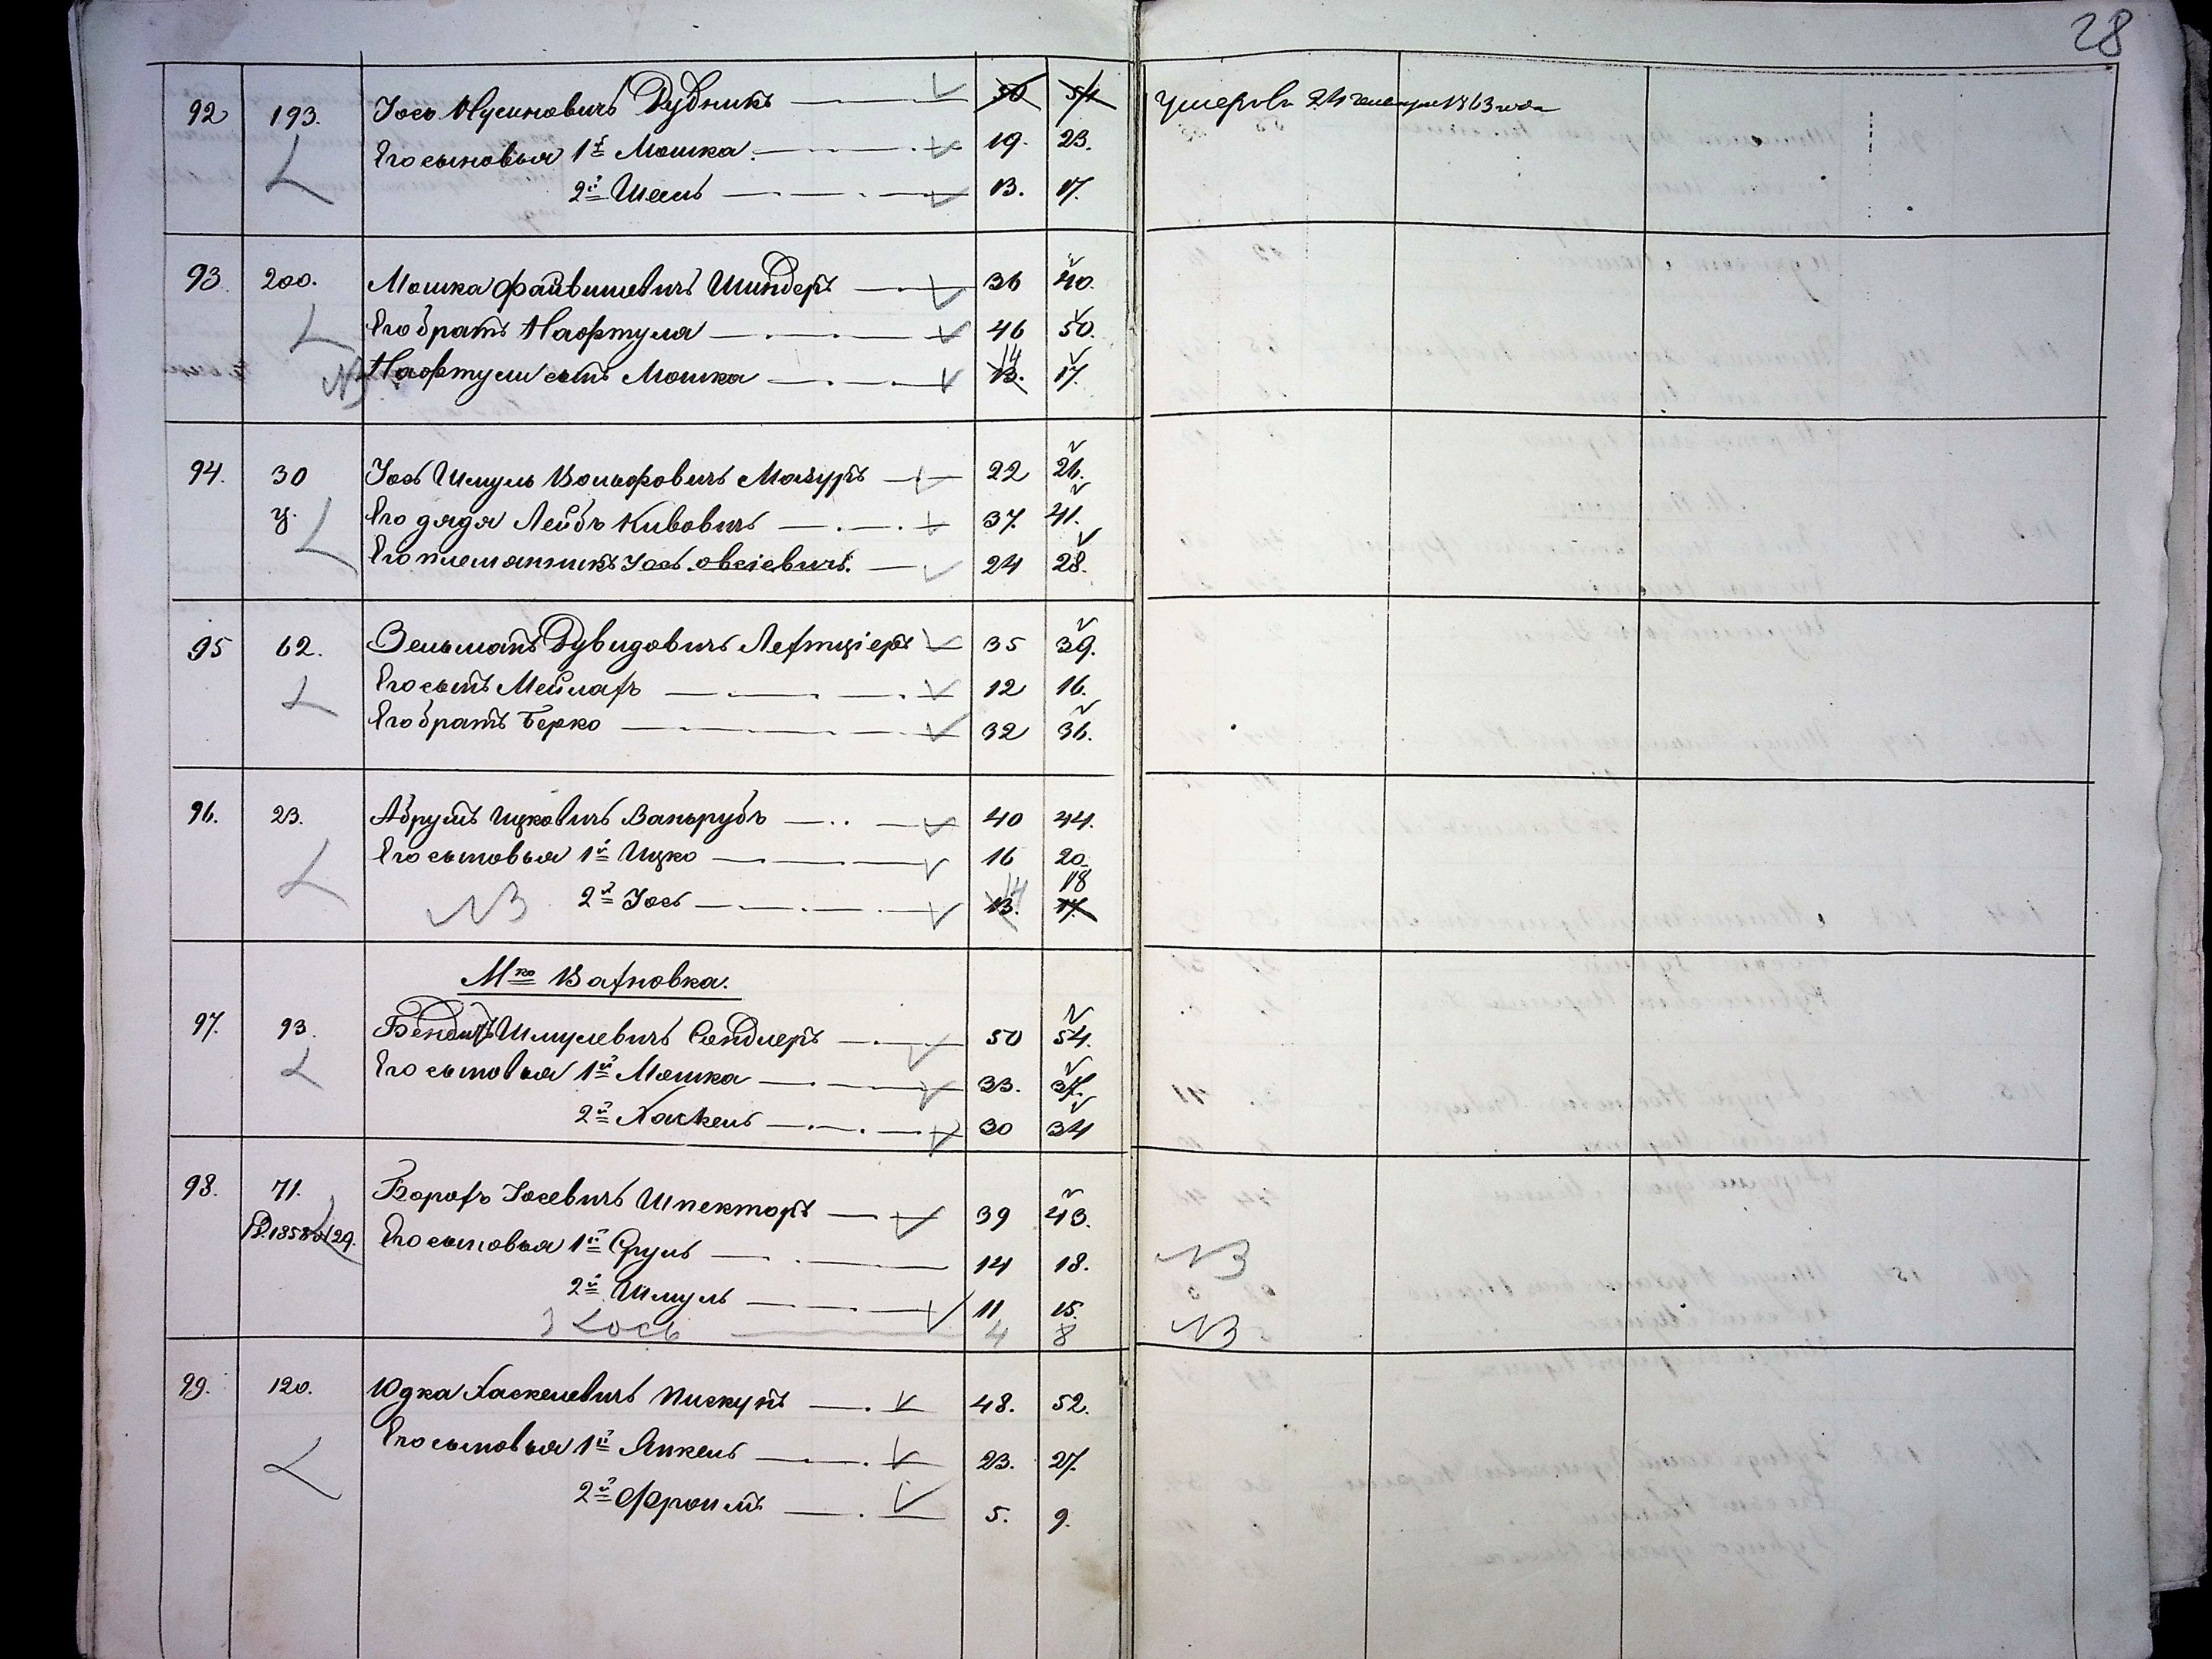 28
92 193. Іось Нусиновичъ Дудникъ 50 54 умеръ 24 генваря 1863 года
Его сыновья 1й Мошка 19. 23.
2й Шаель 13. 17.
93. 200. Мошка Файвишевичъ Шиндеръ 36 40.
Его братъ Нафтула 46 50.
NB Нафтули сынъ Мошка 13. 14 17.
94. 30 Іось Шмуль Вольфовичъ Мазуръ 22 26.
у. Его дядя Лейбъ Кивовичъ 37. 41.
Его племянникъ Іось Овсіевичъ. 24 28.
95 62. Зельманъ Дувидовичъ 35 39.
Его сынъ Мейлахъ 12 16.
Его братъ Берко 32 36.
96. 23. Абрумъ Ицковичъ Ванърубъ 40 44.
Его сыновья 1й Ицко 16 20
18
NB 2й Іось 13. 14 17.
Мко Вахновка.
97. 93. Бендитъ Шмулевичъ Сендлеръ 50 54.
Его сыновья 1й Мошка 33. 37.
2й Хаскель 30 34
98. 71. Борохъ Іосевичъ Шпекторъ 39 43.
Р.1858 №129. Его сыновья 1й Сруль 14 18. NB
2й Шмуль 11 15.
3 Іось 4 8 NB
99. 120. Юдка Хаскелевичъ Пискунъ 48. 52.
Его сыновья 1й Янкель 23. 27.
2й Фроимъ 5. 9.